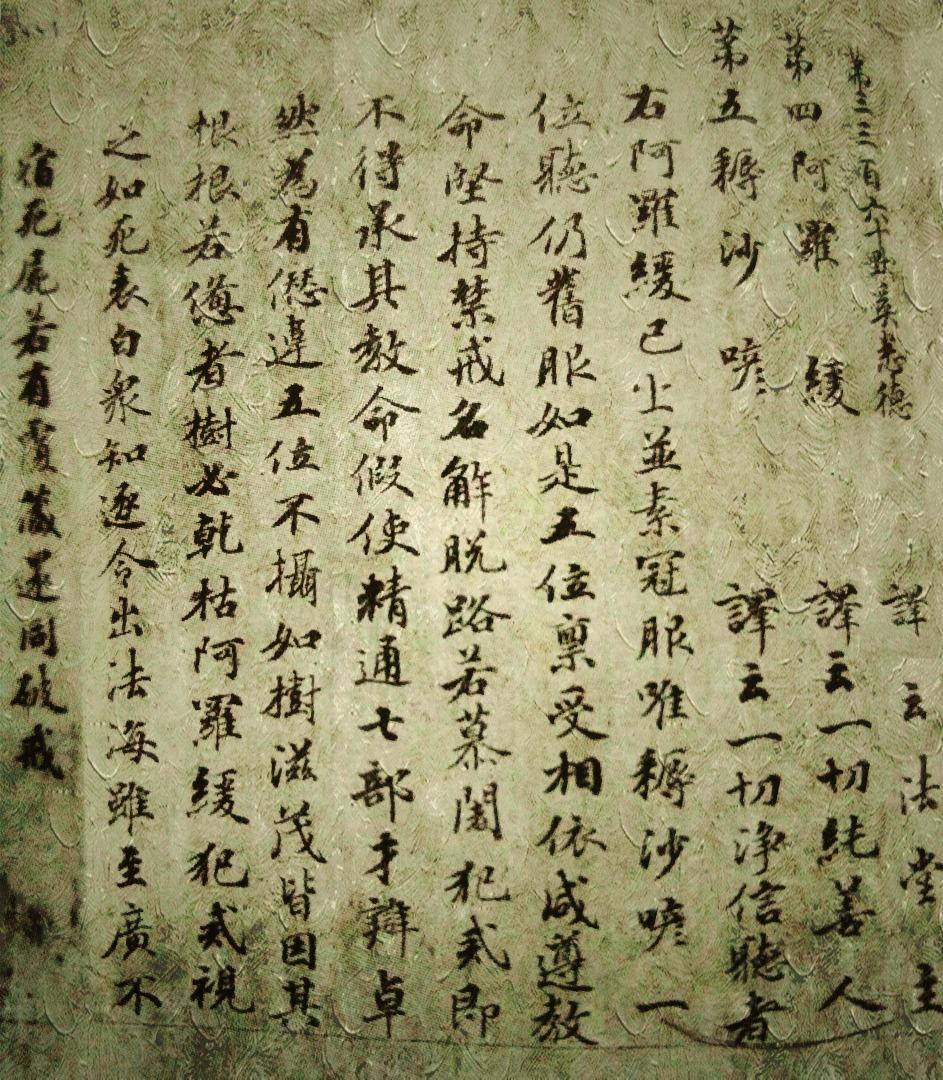 第三三百六十默奚悉德 譯云法堂主
第四阿羅緩 譯云一切純善人
第五耨沙喭 譯云一切淨信聽者
右阿羅緩已上並素冠服唯耨沙喭一
位聽仍舊服如是五位稟受相依咸遵教
命堅持禁戒名解脫路若慕闍犯戒即
不得承其教命假使精通七部才辯卓
然為有愆違五位不攝如樹滋茂皆因其
根根若憊者樹必乾枯阿羅緩犯戒視
之如死表白眾知逐令出法海雖至廣不
宿死屍若有覆藏還同破戒